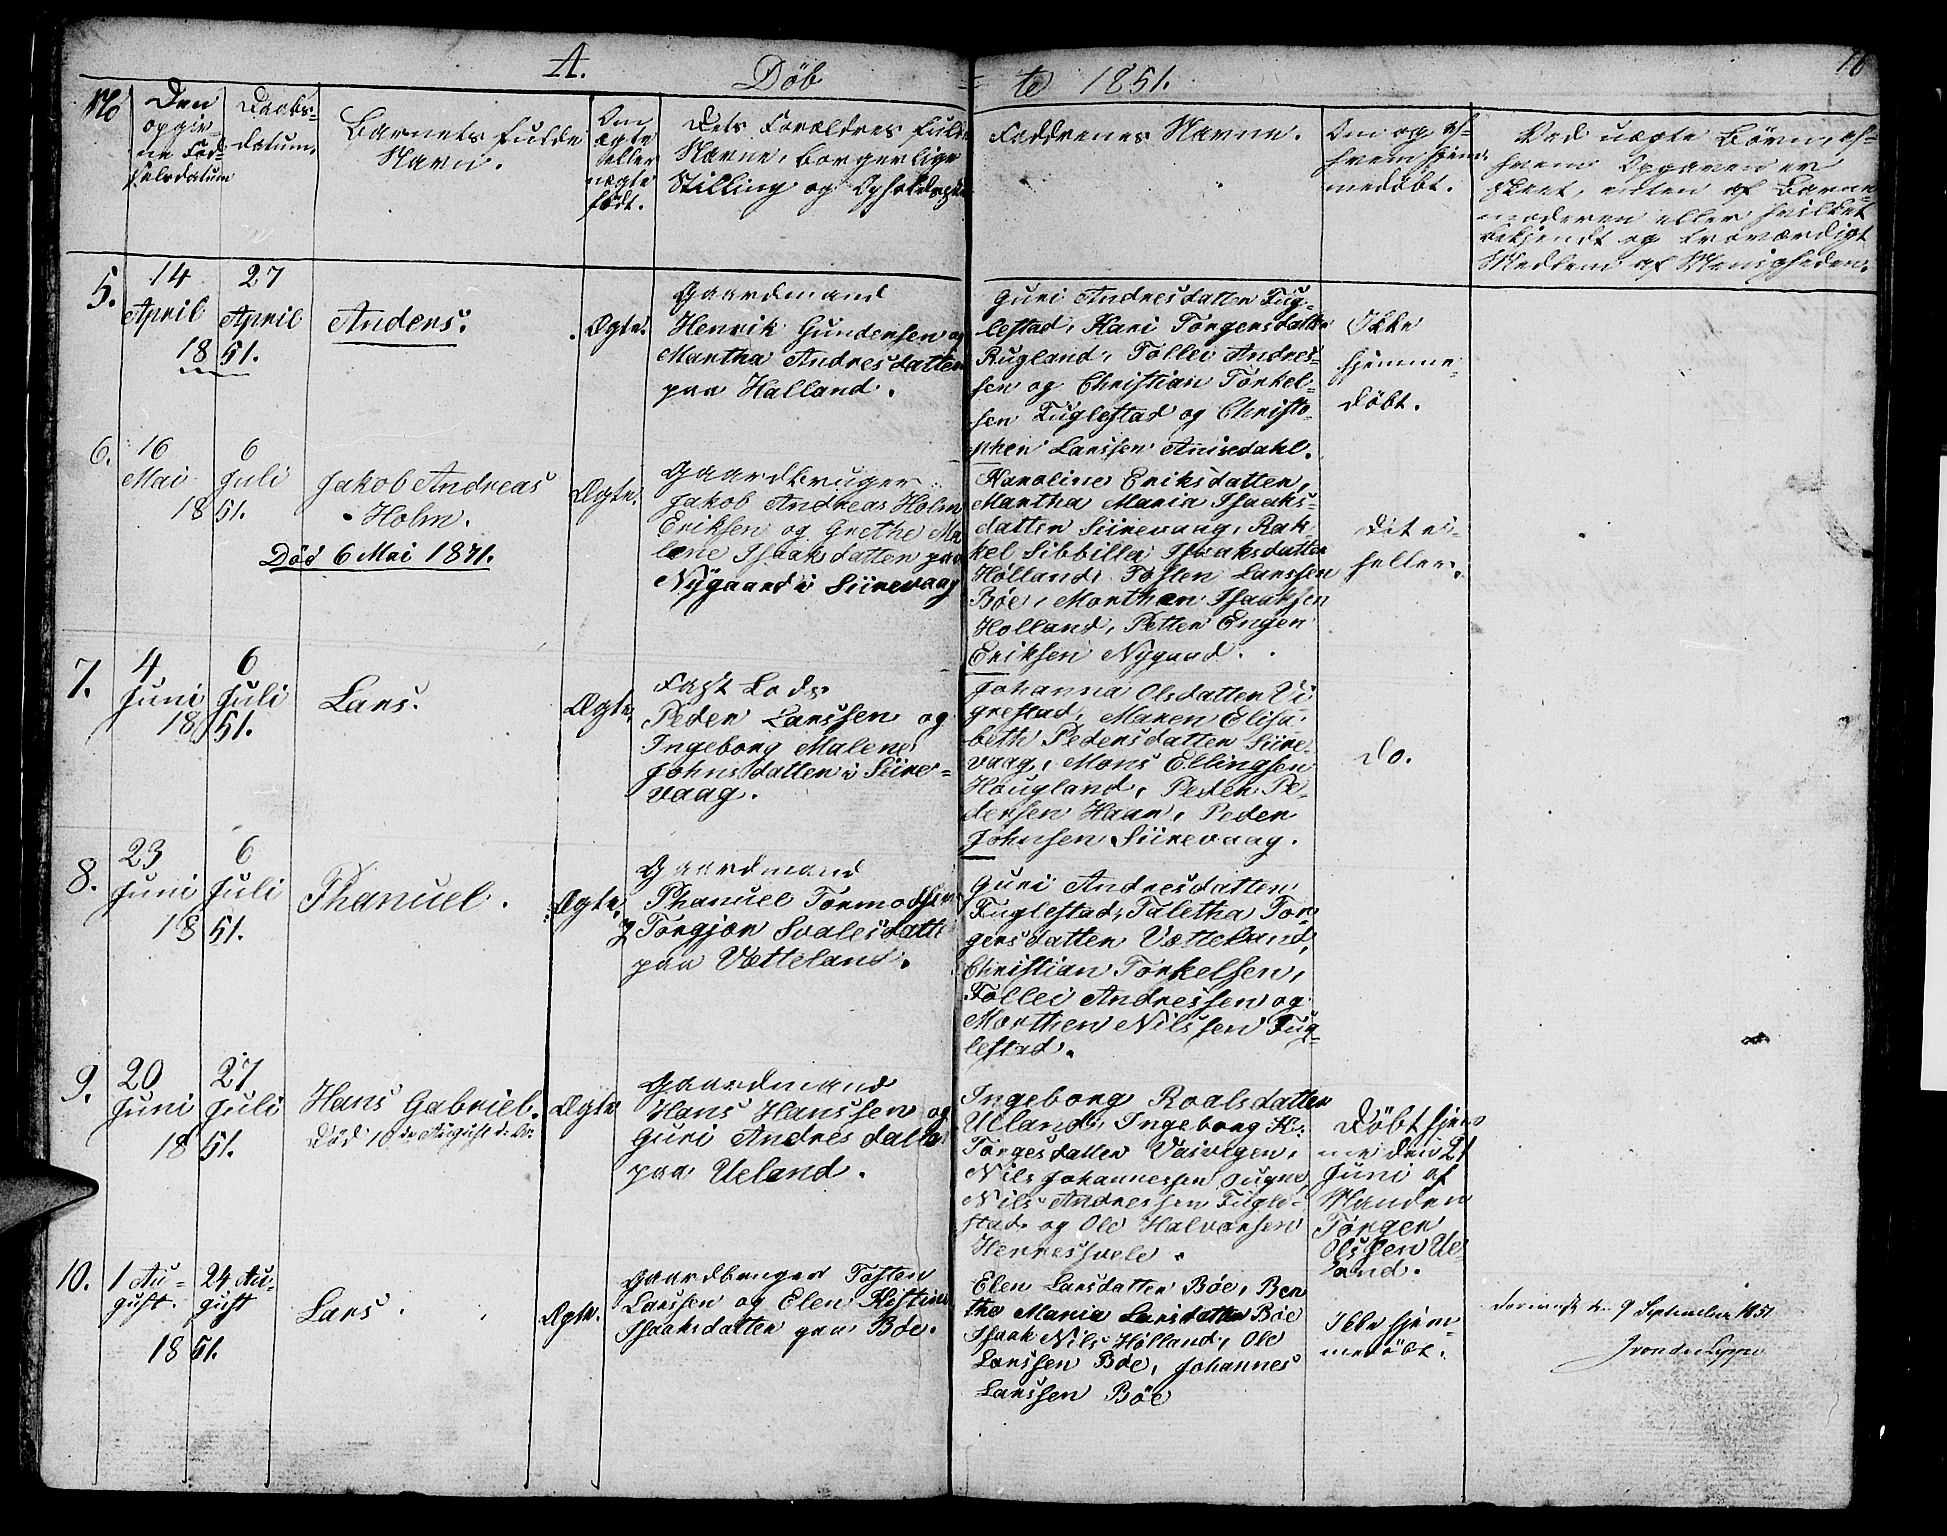 A.
Döb
=
te 1851.
16
No
Den
opgiv-
ne Föd-
selsdatum
Daabs-
datum.
Barnets fulde
Navn.
Om
ægte
eller
uægte
födt.
Dets Forældres fulde
Navne, borgerlige
Stilling og Opholdssted
Faddrenes Navne.
Om og af
hvem hjem-
medöbt.
Ved uægte Börn, af
hvem Opgaven er
skeet, enten af Barne-
moderen eller hvilket
bekjendt og troværdigt
Medlem af Menigheden.
5.
14
April
27
April
1851.
Anders.
Ægte.
Gaardmand
Henrik Gundersen og
Martha Andresdatter
paa Halland.
Guri Andresdatter Fug-
lestad, Kari Torgersdatter
Rugland, Tollei Andres-
sen og Christian Torkel-
sen Fuglestad og Christo-
pher Larssen Anisedahl.
Ikke
hjemme-
döbt.
6.
16
Mai
6
Juli
1851.
Jakob Andreas
Holm.
Död 6 Mai 1871.
Ægte.
Gaardbruger
Jakob Andreas Holm
Eriksen og Grethe Ma
lene Isaaksdatter paa
Nÿgaard i Siirevaag
Karoline Eriksdatter,
Martha Maria Isaaks-
datter Siirevaag, Rak
kel Sibbilla Isaaksdatter
Holland, Tosten Larssen
Böe, Morthen Isaaksen
Holland, Petter Enger
Eriksen Nygaad.
Dit ei-
heller.
7.
4
Juni
6
Juli
1851.
Lars.
Ægte.
Fast Lods
Peder Larssen og
Ingeborg Malene
Johnsdatter i Siire-
vaag.
Johanna Olsdatter Vi
grestad, Maren Elisa-
beth Pedersdatter Siire-
vaag, Mons Ellingsen
Hougland, Peder Pe-
dersen Haar, Peder
Johnsen Siirevaag.
do.
8.
23
Juni
6
Juli
1851.
Phanuel.
Ægte.
Gaardmand
Phanuel Tormodsen
& Torgjor Svalesdatter
paa Vætteland.
Guri Andresdatter
Fuglestad, Taletha Tor-
gersdatter Vætteland,
Christian Torkelsen,
Tollei Andressen og
Morthen Nilssen Fug-
lestad.
9.
20
Juni
27
Juli
1851.
Hans Gabriel.
Död 10de August d. Aar.
Ægte
Gaardmand
Hans Hanssen og
Guri Andresdatter
paa Ueland.
Ingeborg Roalsdatter
Ueland, Ingeborg K:
Torgesdatter Vaivigen,
Nils Johannessen
Nils Andressen Fugle-
stad og Ole Halvorsen
Döbt hjem
me den 21
Juni af
Manden
Torger
Olssen Ue-
land.
10.
1 Au-
gust.
24 Au-
gust
1851.
Lars.
Ægte.
Gaardbruger Tosten
Larssen og Elen Kistine
Isaaksdatter paa Böe.
Elen Larsdatter Böe, Ben
the Maria Larsdatter Böe
Isaak Nils Holland, Ole
Larssen Böe, Johannes
Larssen Böe
Ikke hjem-
medöbt.
9 September 1851
J von der Lippe